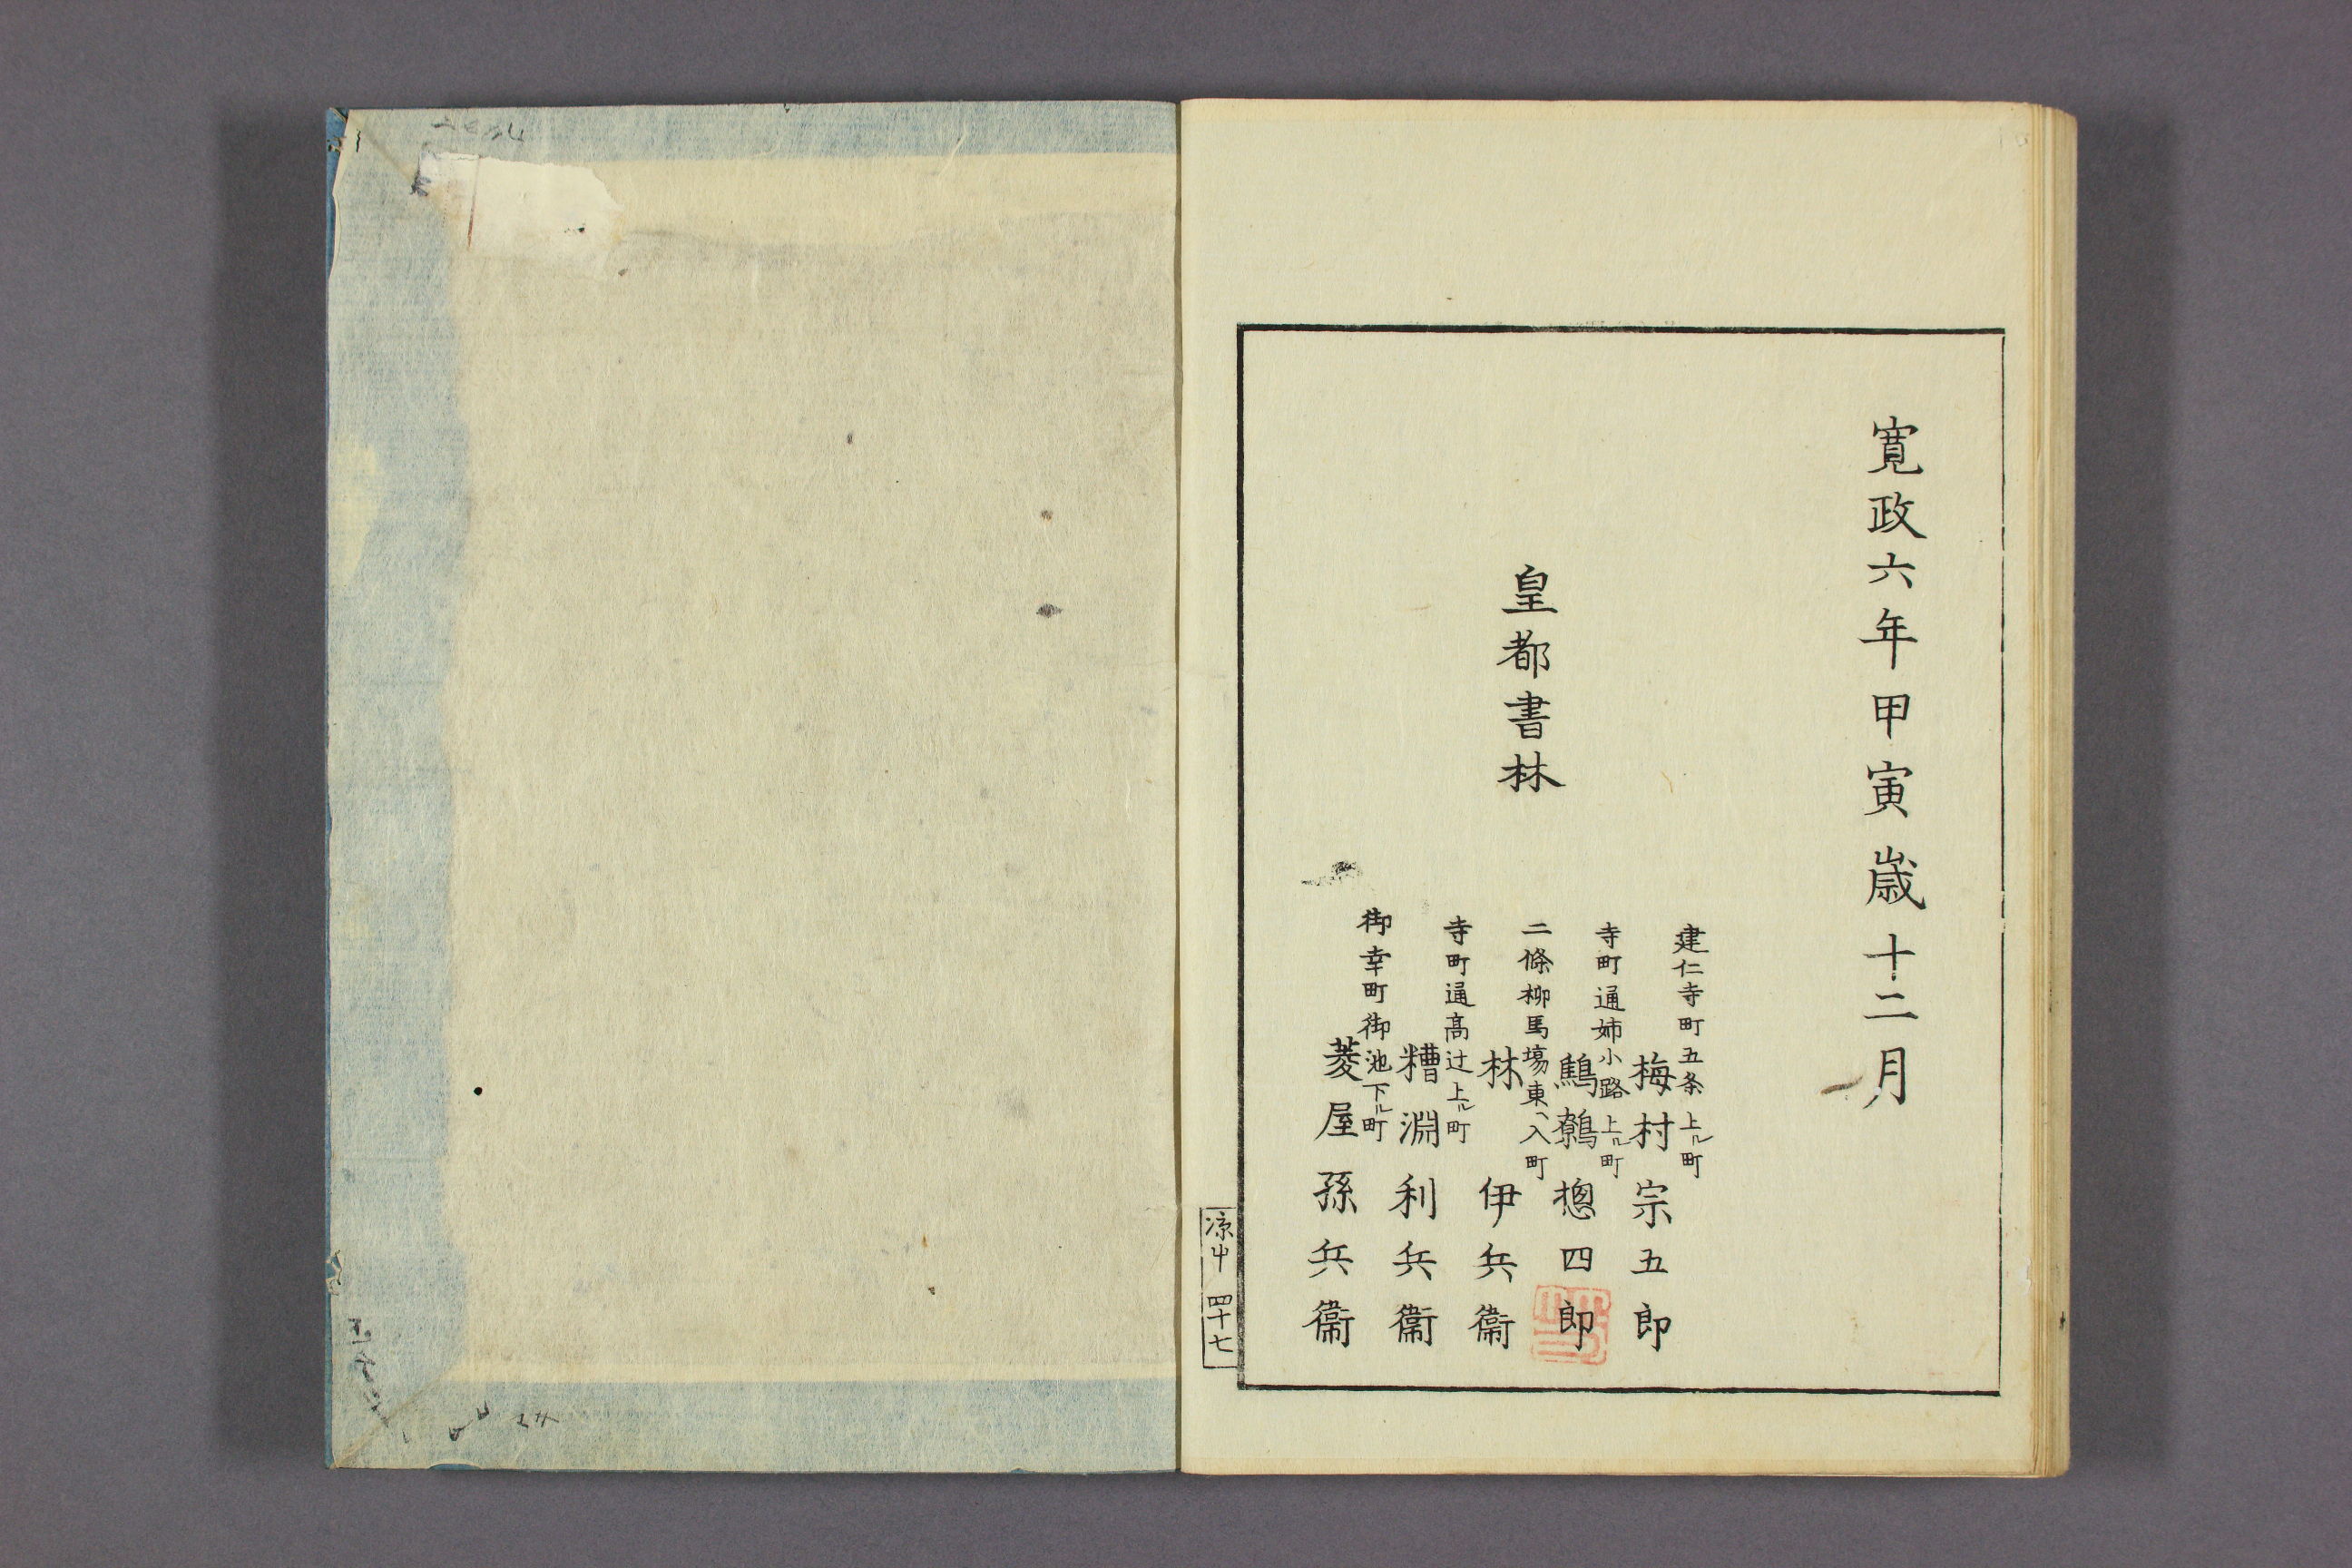 寛政六年甲寅歳十二月
皇都書林
建仁寺町五条上ル町
梅村宗五郎
寺町通姉小路上ル町
鷦鷯惣四郎
二條柳馬塲東ヘ入町
林伊兵衞
寺町通髙辻上ル町
糟淵利兵衞
御幸町御池下ル町
菱屋孫兵衞
凉中 四十七